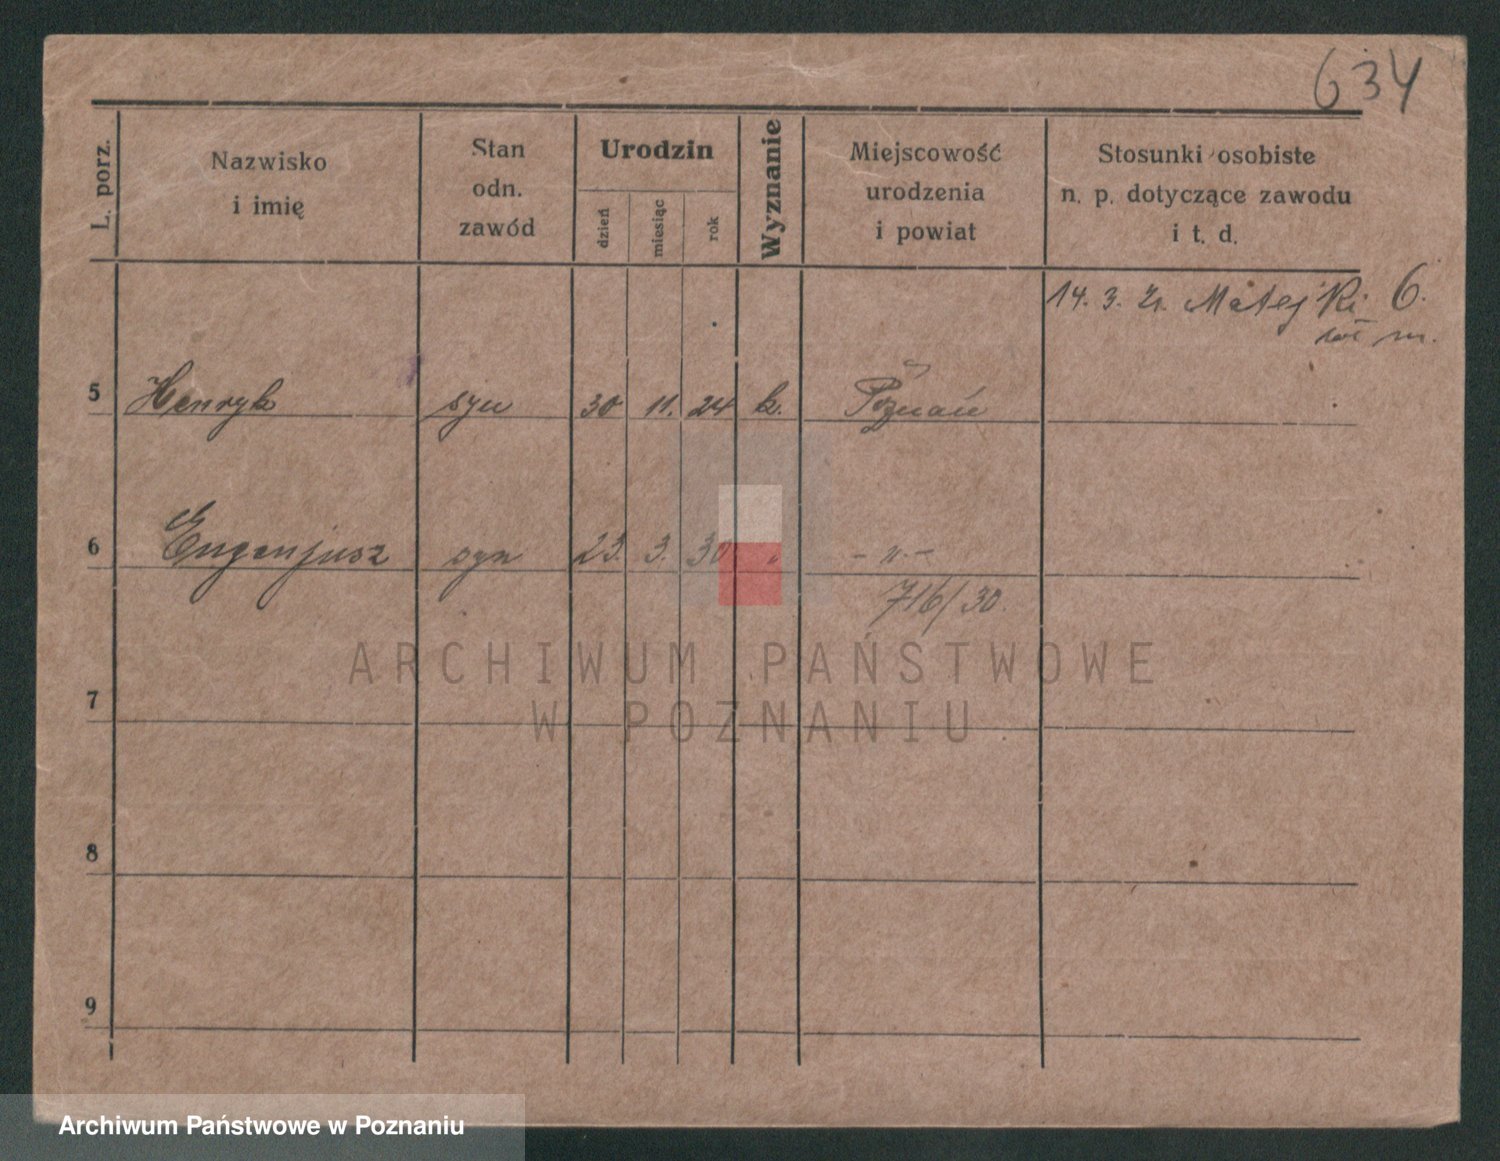 634
L. porz.
Nazwisko
i imię
Stan
odn.
zawód
Urodzin
dzień
miesiąc
rok
Wyznanie
Miejscowość
urodzenia
i powiat
Stosunki osobiste
n. p. dotyczące zawodu
i t. d.
14. 3. Matejki 6.
5 Henryk syn 30 11. 24 k. Poznań
6 Eugenjusz syn 23. 3. 30 " - " -
716/30.
7
8
9
ARCHIWUM PAŃSTWOWE
W POZNANIU
Archiwum Państwowe w Poznaniu